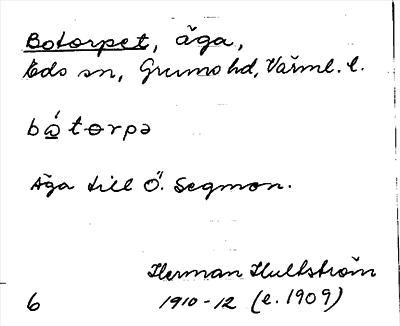 Botorpet, äga,
Eds sn, Grums hd, Värml. l.
bǻtorpə
Äga till Ö. Segmon.
Herman Hultström
6 1910-12 (l. 1909)